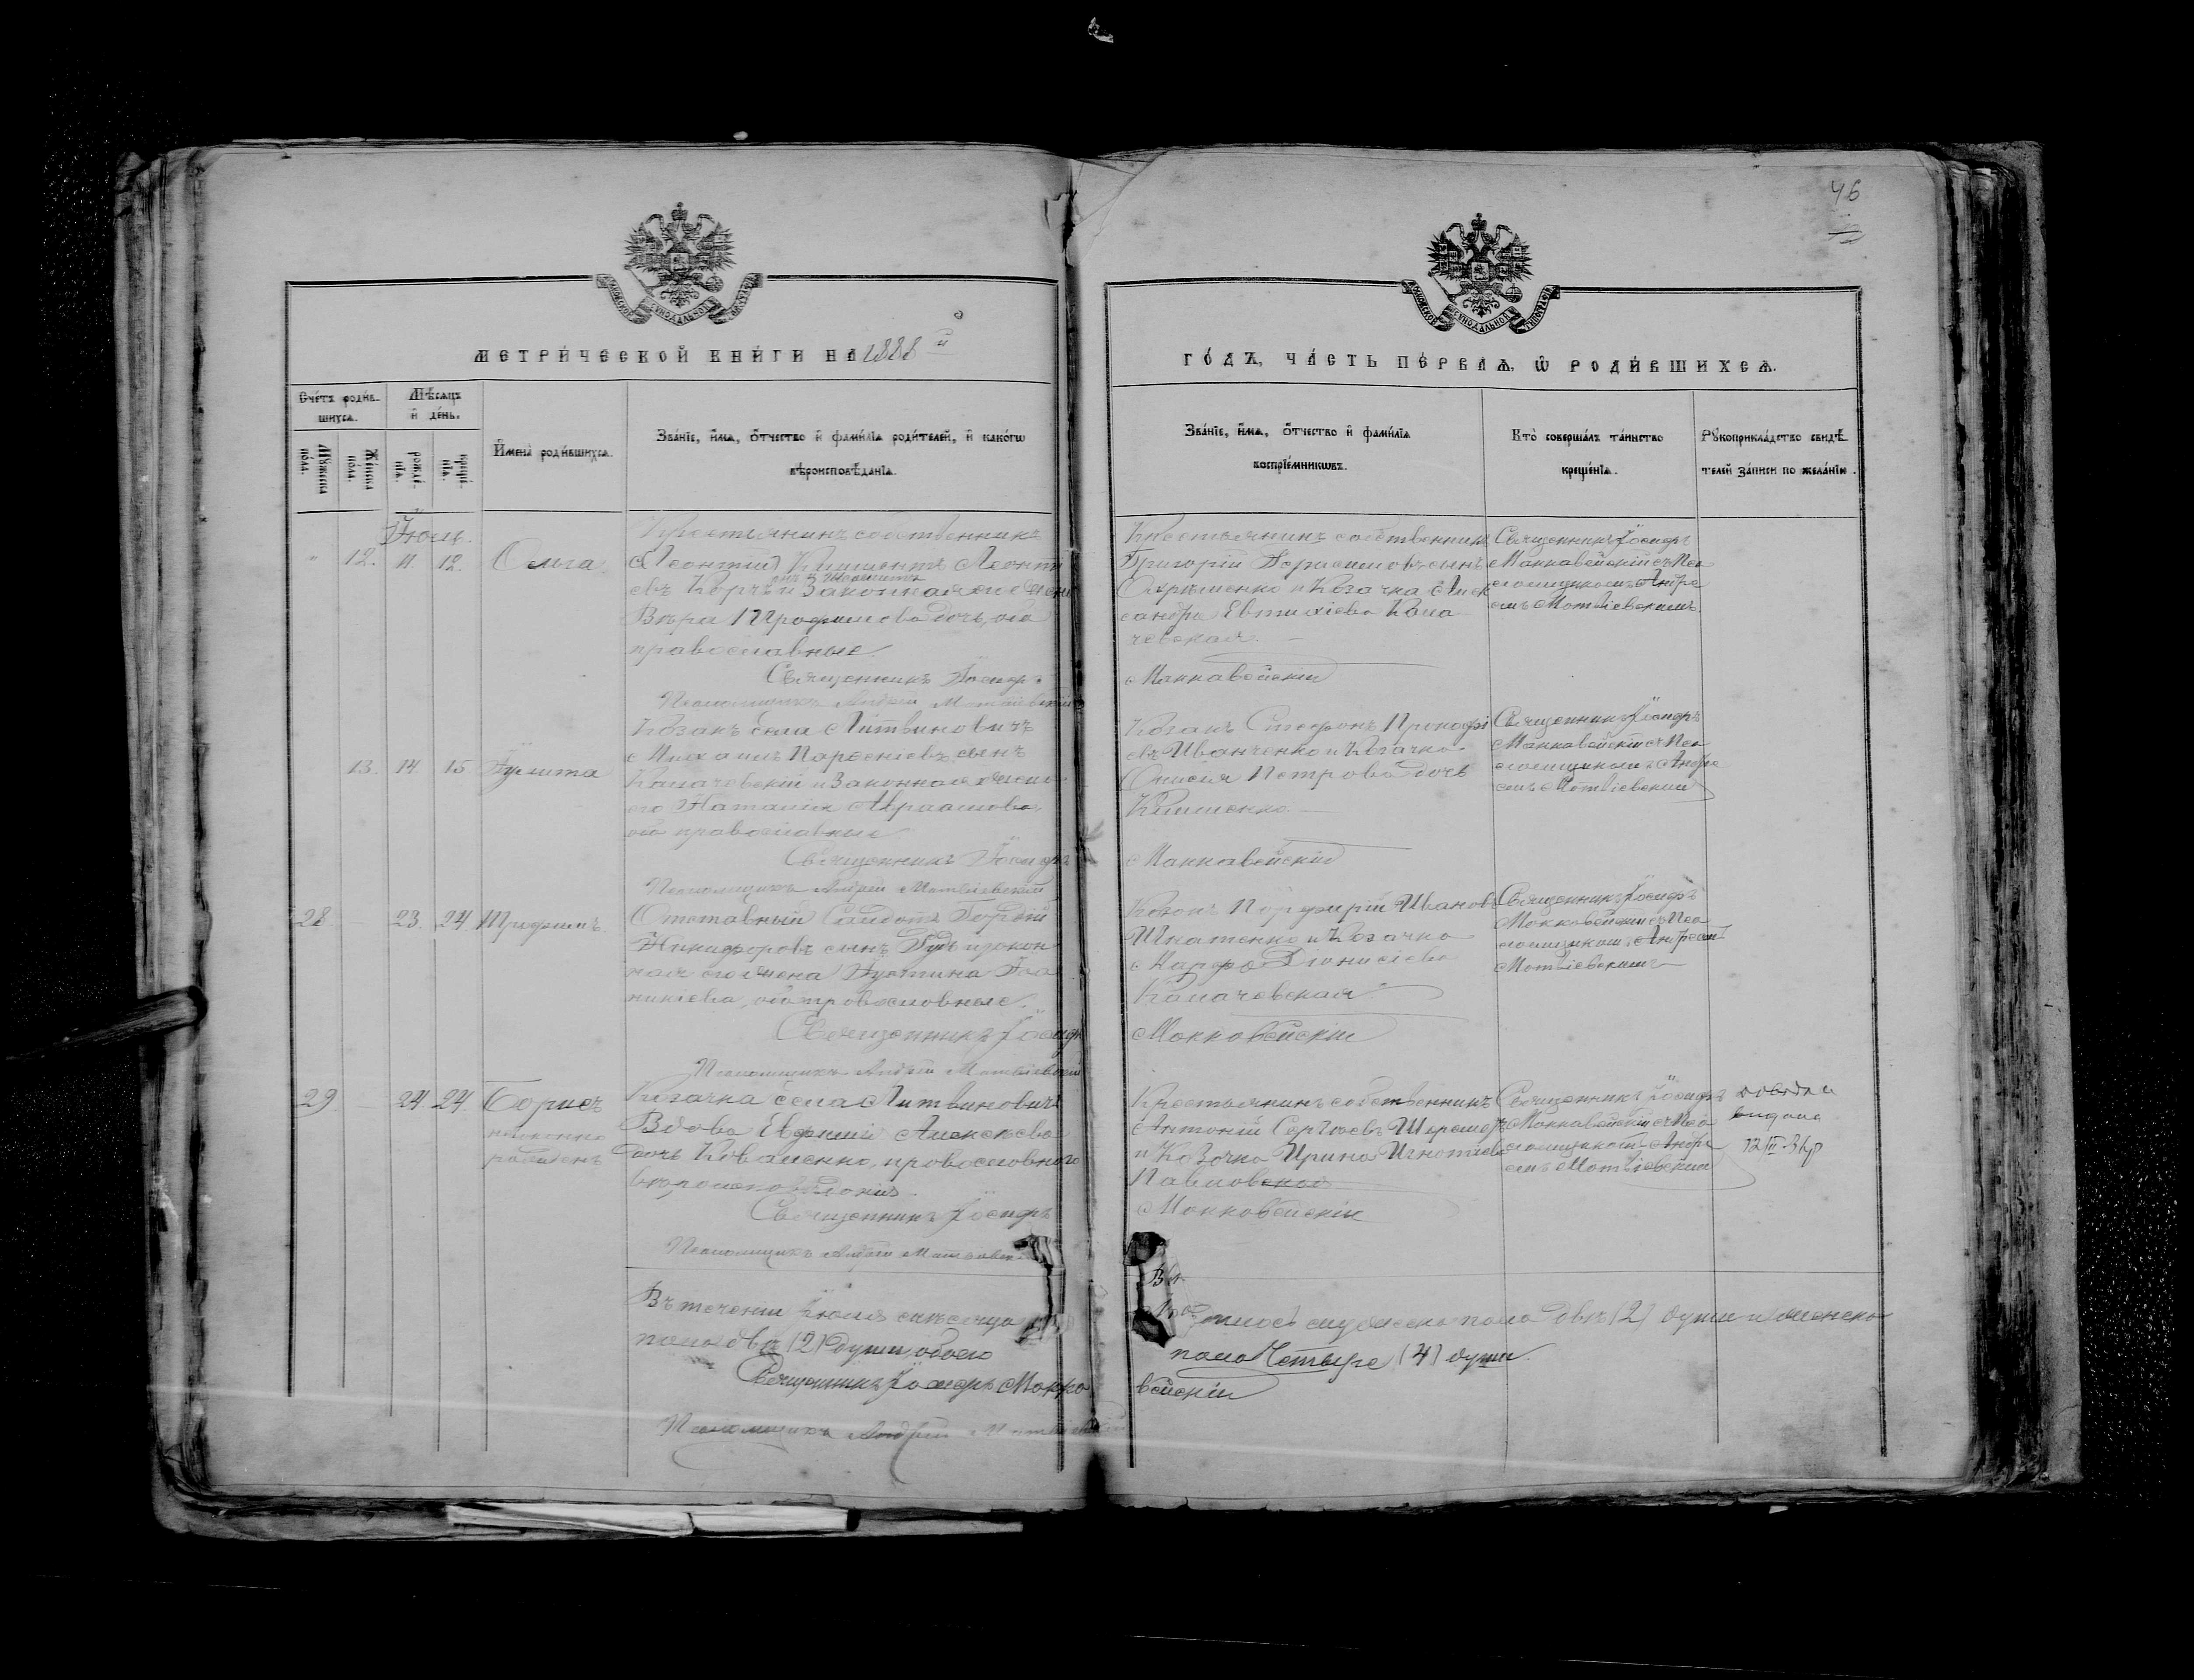 46
МЕТРИЧЕСКОЙ КНИГИ НА 1888 й
ГОДЪ, ЧАСТЬ ПЕРВАЯ, Ѡ РОДИВШИХСЯ.
Счетъ родившихся.
Мѣсяцъ и день.
Мужеска пола.
Женска пола.
рожденія.
крещенія.
Имена родившихся.
Званіе, имя, отчество и фамилія родителей, и какогѡ
вѣроисповѣданія.
Званіе, имя, отчество и фамилія
воспріемниковъ.
Кто совершалъ таинство
крещенія.
Рукоприкладство свидѣ-
телей записи по желанію.
Іюль.
12. 11. 12. Ольга
Крестьянинъ собственникъ
Климентъ Леонті
евъ и законная
Вѣра Трофимова дочь, оба
православные.
Священникъ Іосифъ
Псаломщикъ Андрей Матвіевскій
Крестьянинъ собственникъ
Григорій Герасимовъ сынъ
и Козачка Алек
сандра Евтихіева Кала
чевская.
Маккавейскій
Священникъ Іосифъ
Маккавейскій съ Пса
ломщикомъ Андре
емъ Матвіевскимъ
13. 14. 15. Іулита
Козакъ села Литвиновичъ
Михаилъ Парѳеніевъ сынъ
Калачевскій и законная жена
его Наталія Авраамова
оба православные
Священникъ Іосифъ
Псаломщикъ Андрей Матвіевскій
Козакъ Стефанъ Прокофі
евъ Иванченко и Козачка
Онисія Петрова дочь
Клименко.
Маккавейскій
Священникъ Іосифъ
Маккавейскій съ Пса
ломщикомъ Андре
емъ Матвіевскимъ
28 23. 24. Трофимъ.
Отставный Солдатъ Гордій
Никифоровъ сынъ и закон
ная его жена Іустина Іоа
никіева, оба православные.
Священникъ Іосифъ
Псаломщикъ Андрей Матвіевскій
Козакъ Порфирій Иванов
Игнатенко и Козачка
Марфа Діонисіева
Калачевская.
Маккавейскій
Священникъ Іосифъ
Маккавейскій съ Пса
ломщикомъ Андреемъ
Матвіевскимъ
29 24. 24. Борисъ
незаконно
рожденъ
Козачка села Литвиновичъ
Вдова Евфимія Алексѣева
дочь Коваленко, православнаго
вѣроисповѣданія.
Священникъ Іосифъ
Псаломщикъ Андрей Матвіевскій
Крестьянинъ собственникъ
Антоній Сергіевъ
и Козачка Ирина Игнатіева
Павловская
Маккавейскій
Священникъ Іосифъ
Маккавейскій съ Пса
ломщикомъ Андре
емъ Матвіевскимъ
довідка
видана
Въ теченіи Іюля мѣсяца
мужеска пола двѣ (2) души и женска
пола двѣ (2) души обоего
пола четыре (4) души.
Священникъ Іосифъ Макка
вейскій
Псаломщикъ Андрей Матвіевскій